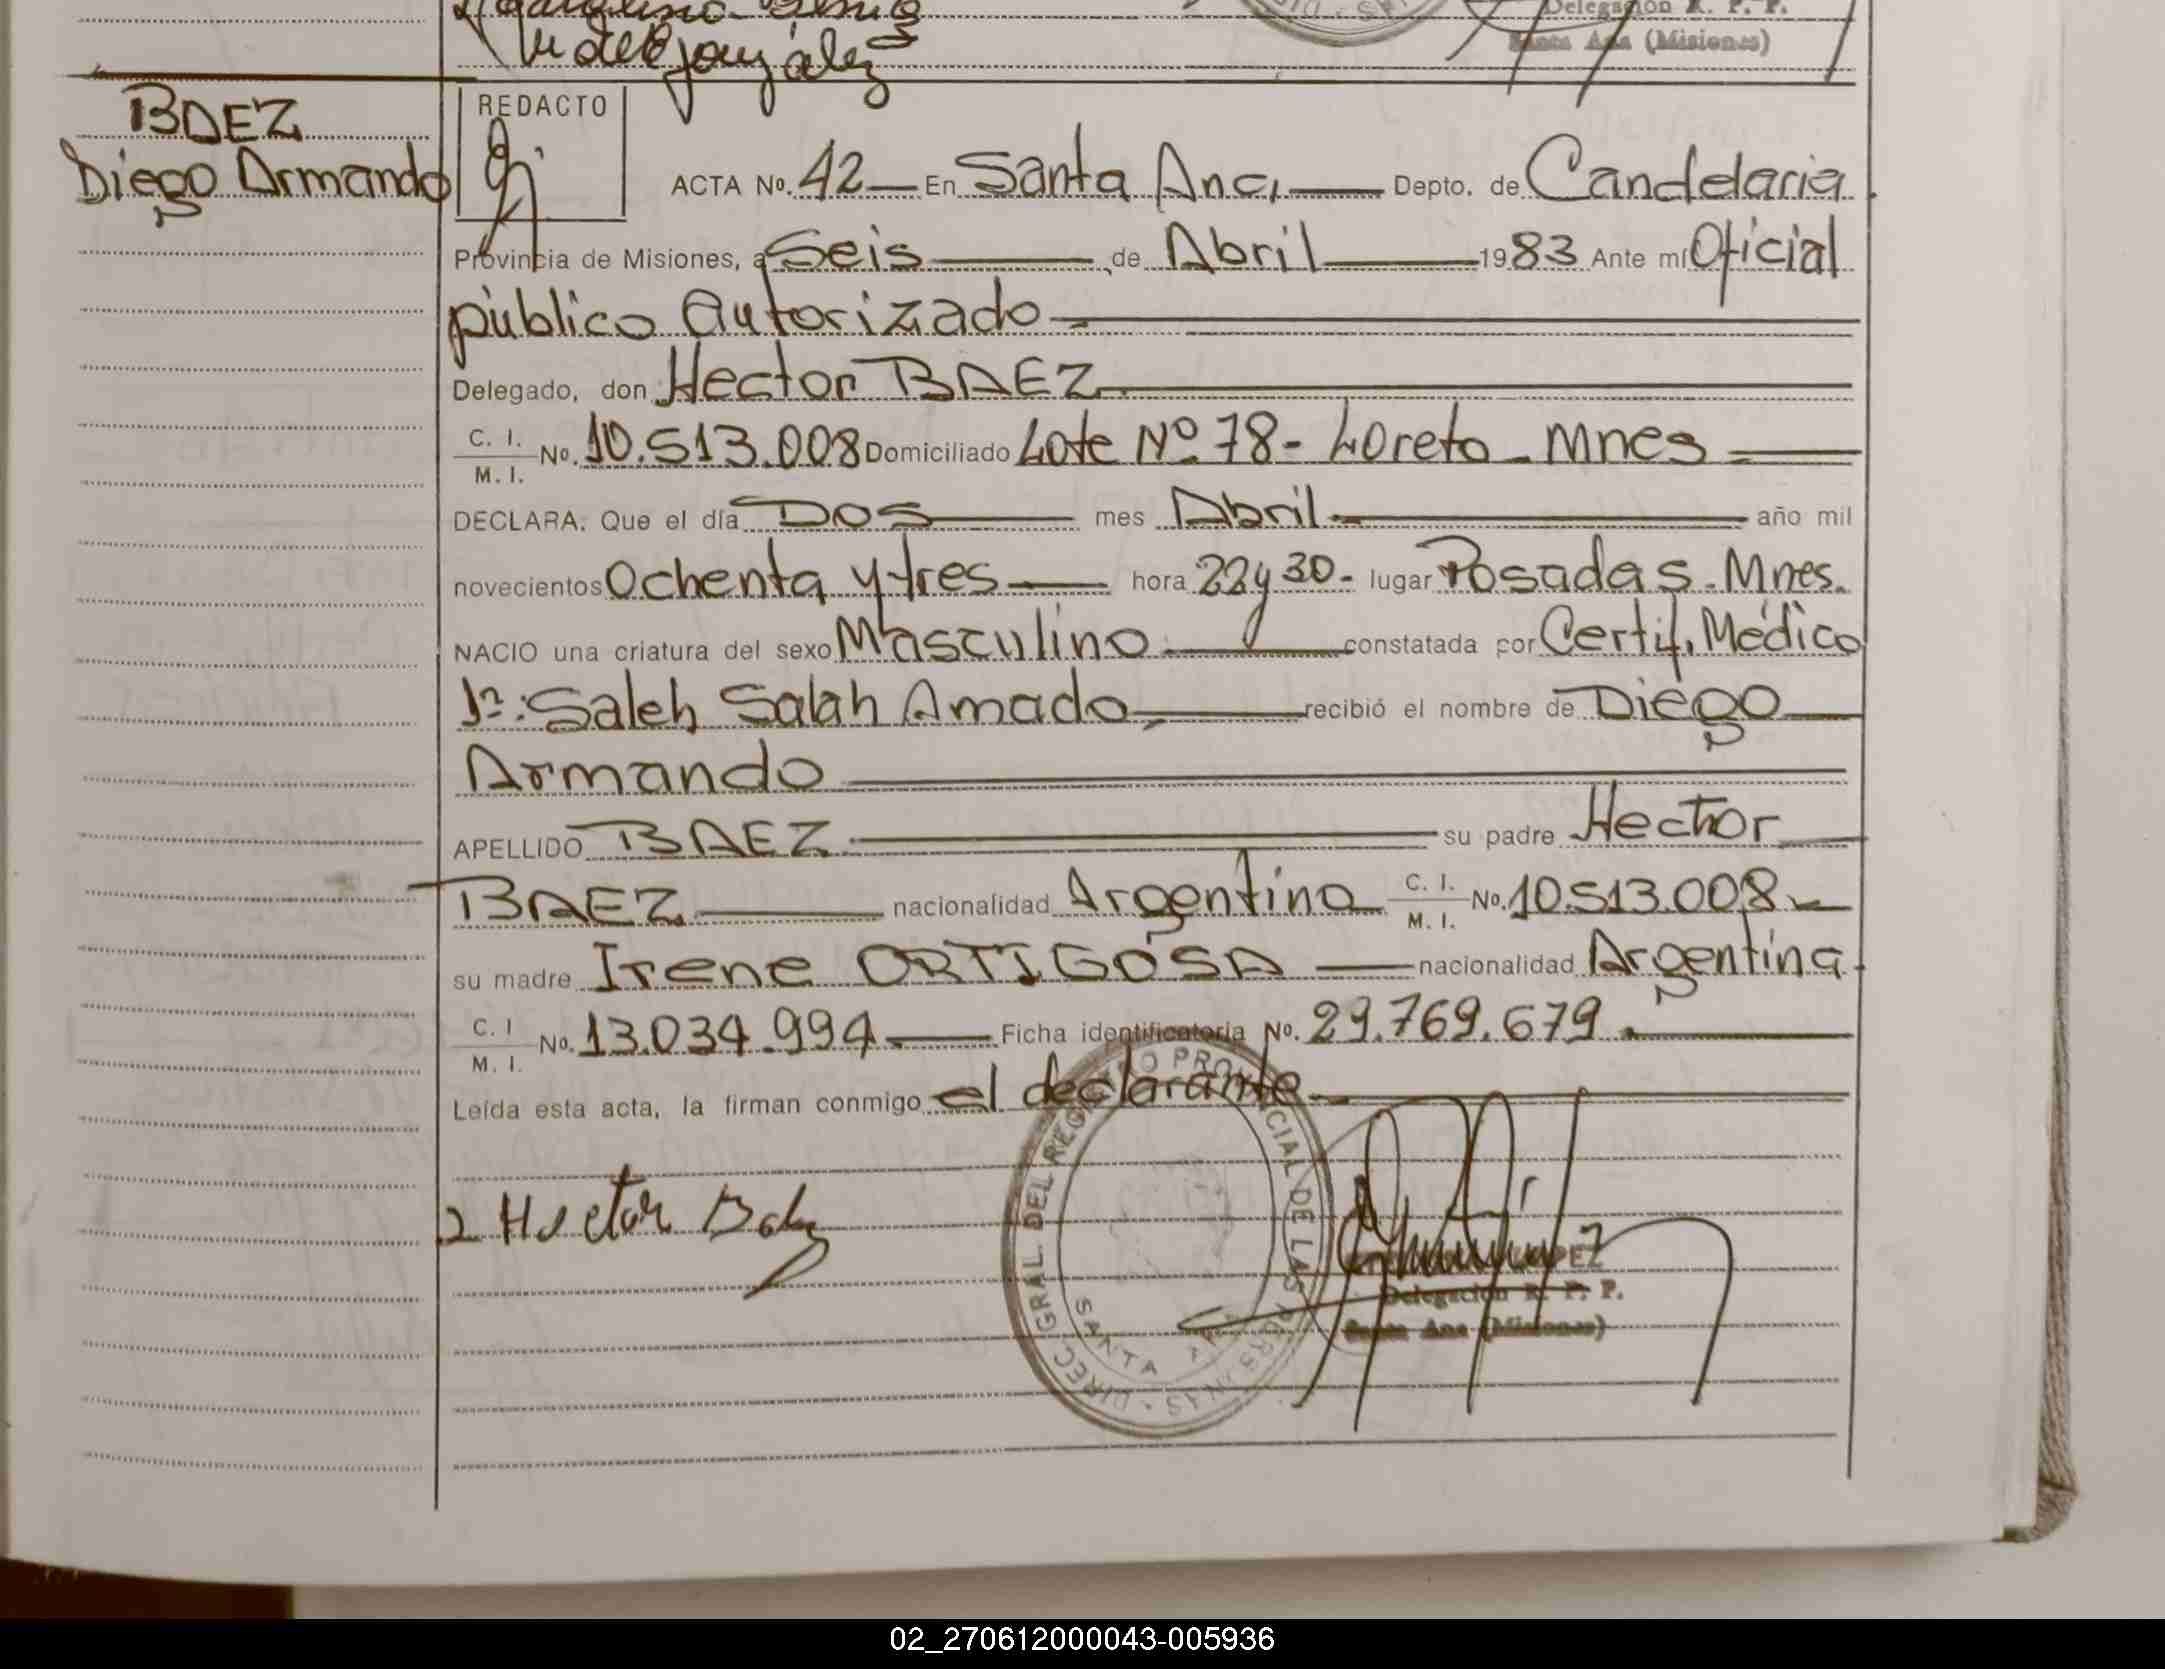 Delegación R. P. P.
González
Santa Ana (Misiones)
BAEZ
Diego Armando
REDACTO
ACTA No. 42 En Santa Ana, Depto. de Candelaria
Provincia de Misiones, a Seis de Abril 1983 Ante mí Oficial
público Autorizado
Delegado, don Hector BAEZ
C. I.
M. I. No. 10.513.008 Domiciliado Lote Nº 78 - Loreto - Mnes
DECLARA: Que el día DOS mes Abril año mil
novecientos Ochenta y tres hora 22 y 30 - lugar Posadas - Mnes.
NACIO una criatura del sexo Masculino constatada por Certif. Médico
Saleh Salah Amado, recibió el nombre de Diego
Armando
APELLIDO BAEZ su padre Hector
BAEZ nacionalidad Argentina C. I.
M. I. No. 10.513.008
su madre Irene ORTIGOSA nacionalidad Argentina
C. I
M. I. No. 13.034.994 Ficha identificatoria No. 29.769.679
Leída esta acta, la firman conmigo el declarante
DIREC. GRAL. DEL REGISTRO PROVINCIAL DE LAS PERSONAS
SANTA ANA
Hector Baez
Delegación R. P. P.
Santa Ana (Misiones)
02_270612000043-005936